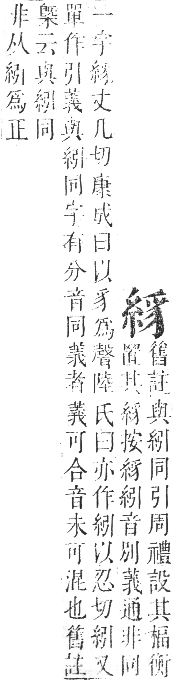 絼
舊註與紖同引周禮設其楅衡
置其絼按絼紖音別義通非同
一字絼丈几切康成曰以豸爲聲陸氏曰亦作紖以忍切紖又
單作引義與紖同字有分音同義者義可合音未可混也舊註
槩云與紖同
非从紖爲正